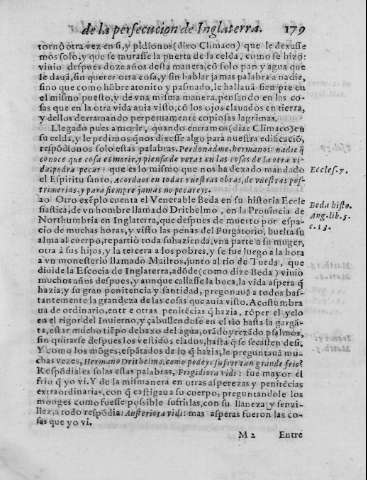 de la persecucion de Inglaterra. 179
tornò otra vez en si, y pidionos (dixo Climaco) que le dexasse
mos solo, y que se murasse la puerta de la celda, como se hizo:
viuio despues doze años desta manera, cõ solo pan y agua que
le dauã, sin querer otra cosa, y sin hablar jamas palabra a nadie,
sino que como hõbre atonito y pasmado, le hallauã siempre en
el mismo puesto, y de vna misma manera, pensando en las co-
sas que en la otra vida auia visto, cõ los ojos clauados en tierra,
y dellos derramando perpetuamente copiosas lagrimas.
Llegado pues a morir, quando entramos (dize Climaco) en
su celda, y le pedimos q̃ nos dixesse algo para nuestra edificaciõ,
respõdionos solo estas palabras. Perdonadme, hermanos: nadie q̃
conoce que cosa es morir, y piensa de veras en las cosas de la otra vi-
da, podra pecar: que es lo mismo que nos ha dexado mandado
el Espiritu santo. Acordaos en todas vuestras obras, de vuestras pos-
trimerias, y para siempre jamas no pecareys.
Eccles. 7.
20 Otro exẽplo cuenta el Venerable Beda en su historia Eccle
siastica, de vn hombre llamado Drithelmo, en la Prouincia de
Northumbria en Inglaterra, que despues de muerto por espa-
cio de muchas horas, y visto las penas del Purgatorio, buelta su
alma al cuerpo, repartio toda su hazienda, vna parte a su muger,
otra à sus hijos, y la tercera a los pobres, y se fue luego a la hora
a vn monesterio llamado Mailros, junto al rio de Tueda, que
diuide la Escocia de Inglaterra, adõde (como dize Beda) viuio
muchos años despues, y aunque callasse la boca, la vida aspera q̃
hazia, y su gran penitencia y santidad, pregonauã a todos bas-
tantemente la grandeza de las cosas que auia visto. Acostumbra
ua de ordinario, entre otras penitẽcias q̃ hazia, rõper el yelo
en el rigor del Inuierno, y çabullendose en el rio hasta la gargã-
ta, estar mucho tiẽpo debaxo del agua, orãdo y rezãdo psalmos,
sin quitarse despues los vestidos elados, hasta q̃ se secassen de si.
Y como los mõges, espãtados de lo q̃ hazia, le preguntauã mu-
chas vezes, Hermano Drithelmo, como podeys sufrir tan grande frio?
Respõdiales solas estas palabras, Frigidiora vidi: fue mayor el
frio q̃ yo vi. Y de la misma manera en otras asperezas y penitẽcias
extraordinarias, con q̃ castigaua su cuerpo, preguntandole los
monges como fuesse possible sufrirlas, con su llaneza y senzi-
llez, a todo respõdia: Austeriora vidi: mas asperas fueron las co-
sas que yo vi.
Beda histo.
Ang. lib. 5.
c. 13.
M 2 Entre